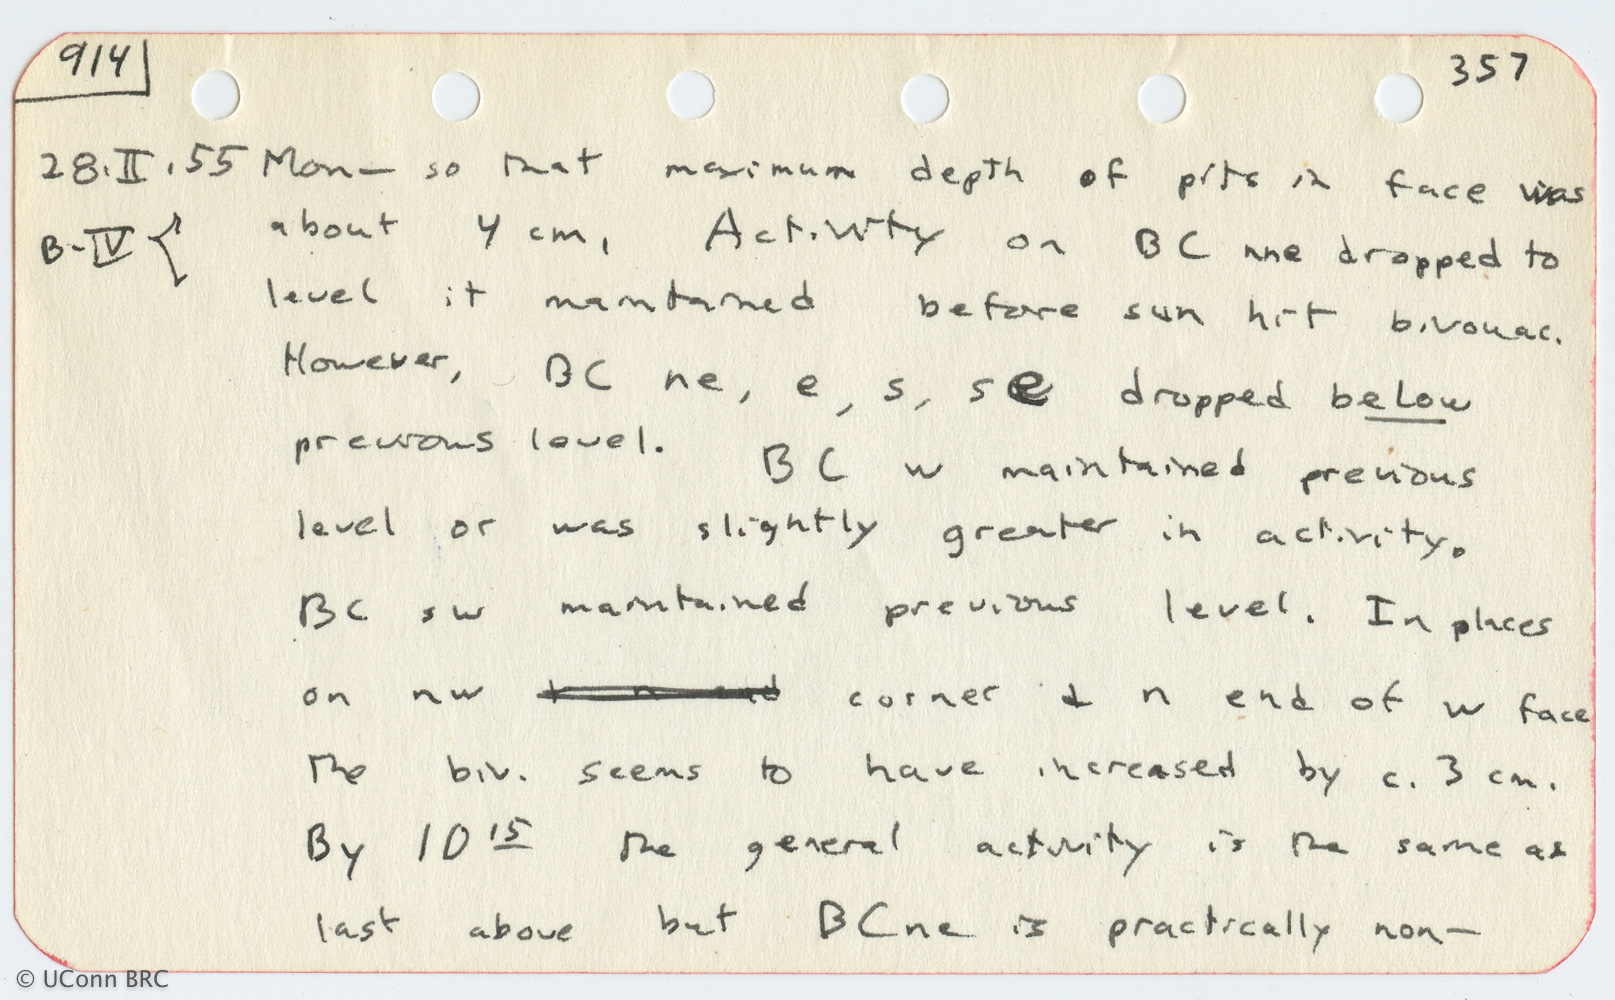 914
357
28.II.55 Mon— so that maximum depth of pits in face was
B-IV { about 4 cm. Activity on BC nne dropped to
level it maintained before sun hit bivouac.
However, BC ne, e, s, se dropped below
previous level. BC w maintained previous
level or was slightly greater in activity.
BC sw maintained previous level. In places
on nw corner & n end of w face
the biv. seems to have increased by c. 3 cm.
By 10 15 the general activity is the same as
last above but BCne is practically non—
© UConn BRC